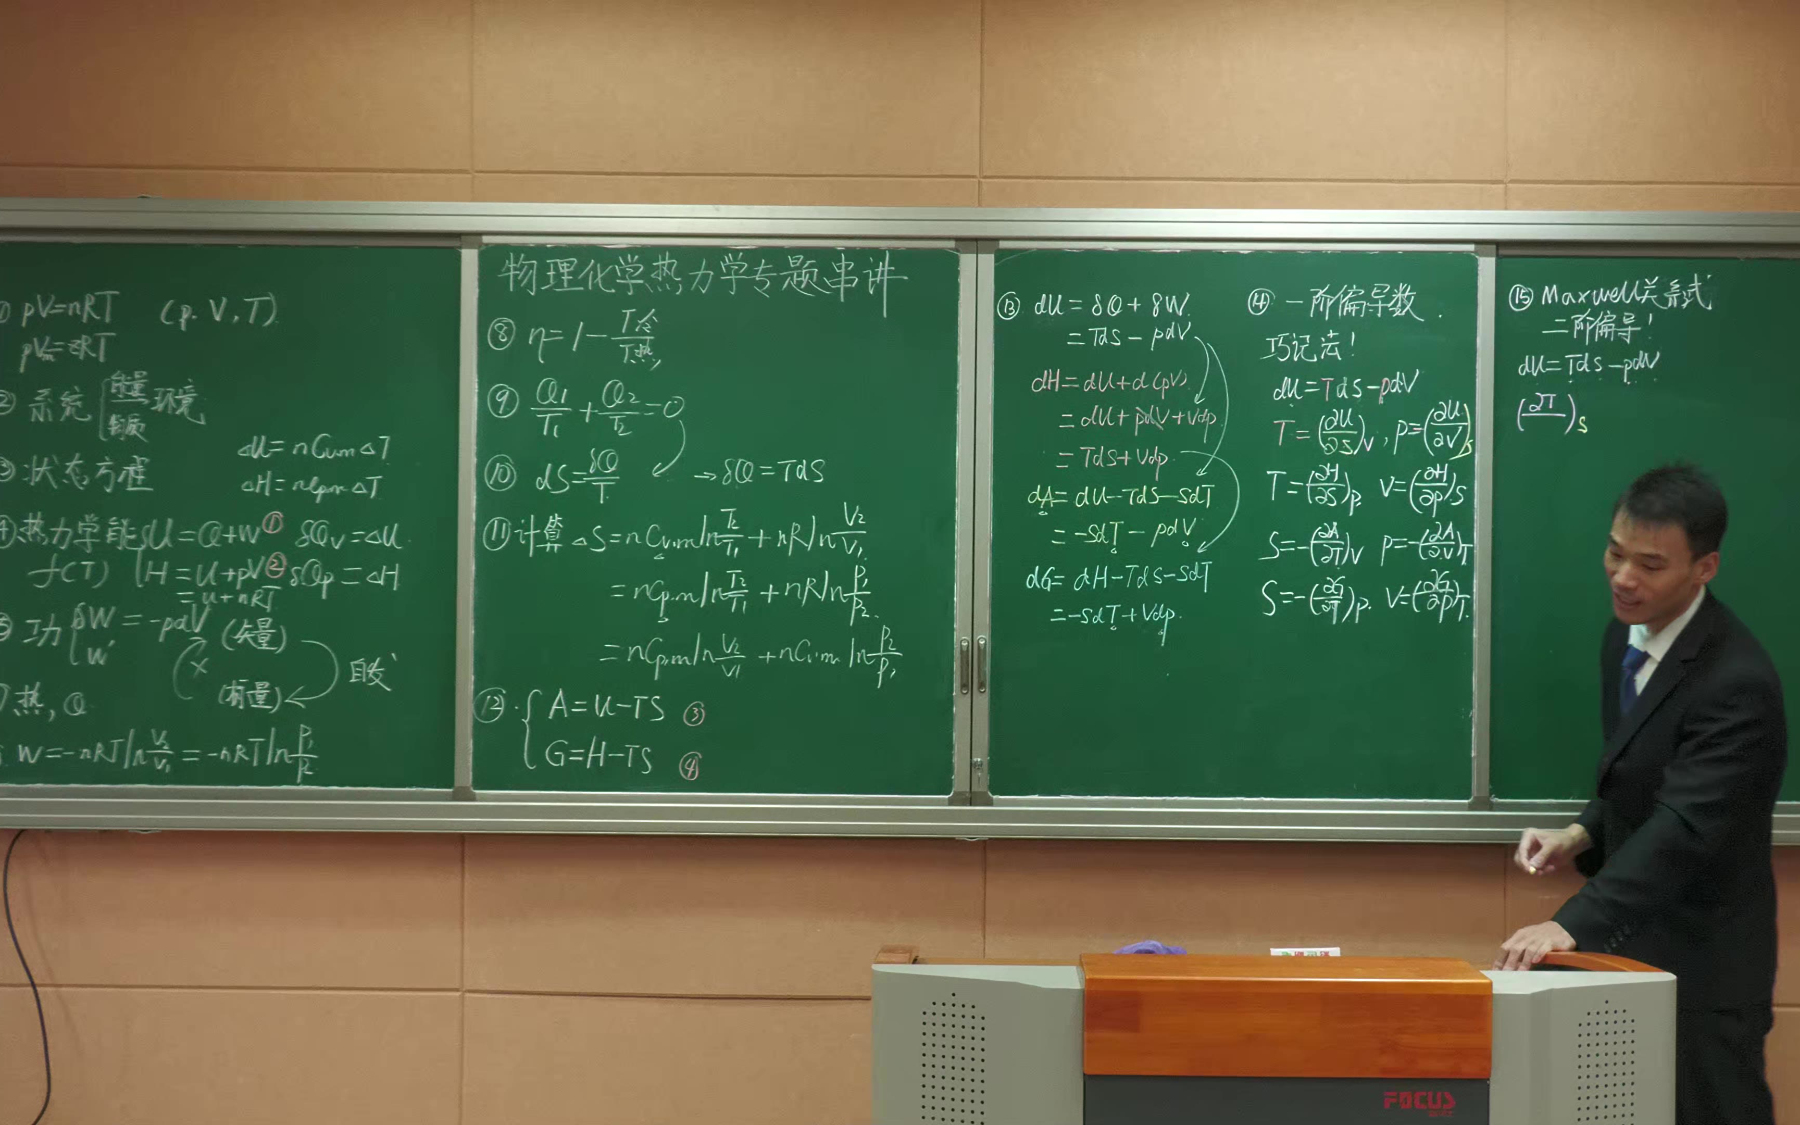 ① pV=nRT (p.V,T)
pVₘ=zRT
② 系统 {能量 物质 环境
③ 状态方程
ΔU=nCv,mΔT
ΔH=nCp,mΔT
④ 热力学能 {U=Q+W① δQv=ΔU
f(T) H=U+pV② δQp=ΔH
=U+nRT
⑤ 功 {δW=-pdV (矢量)
W'
×
(标量) 自发
热,Q
W=-nRTln V₂/V₁=-nRTln P₁/P₂
物理化学热力学专题串讲
⑧ η=1-T冷/T热
⑨ Q₁/T₁+Q₂/T₂=0
⑩ dS=δQ/T →δQ=TdS
⑪ 计算 ΔS=nCv,mln T₂/T₁+nRln V₂/V₁
=nCp,mln T₂/T₁+nRln P₁/P₂
=nCp,mln V₂/V₁+nCv,mln P₂/P₁
⑫ {A=U-TS ③
G=H-TS ④
⑬ dU=δQ+δW
=TdS-pdV
dH=dU+d(pV)
=dU+pdV+Vdp
=TdS+Vdp
dA=dU-TdS-SdT
=-SdT-pdV
dG=dH-TdS-SdT
=-SdT+Vdp
⑭ 一阶偏导数.
巧记法!
dU=TdS-pdV
T=(∂U/∂S)v, p=(∂U/∂V)s
T=(∂H/∂S)p V=(∂H/∂p)s
S=-(∂A/∂T)v p=-(∂A/∂V)T
S=-(∂G/∂T)p. V=(∂G/∂p)T.
⑮ Maxwell关系式
二阶偏导!
dU=TdS-pdV
(∂T/ )s
FOCUS